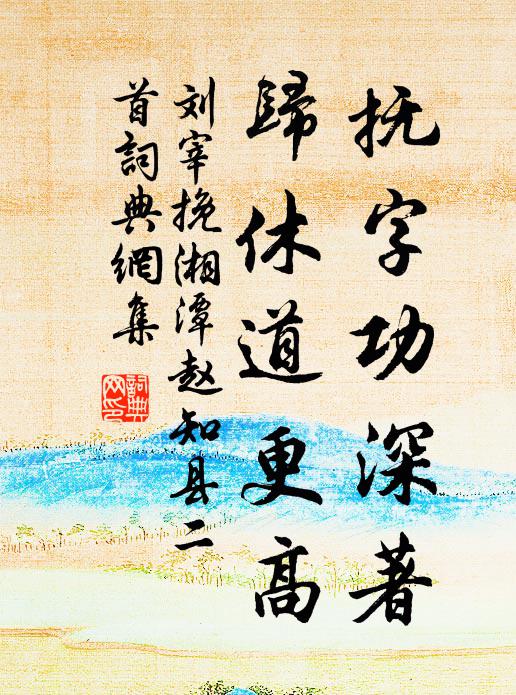 抚字功深著
歸休道更高
刘宰挽湘潭赵知县二
首詞典網集
詞典
网印